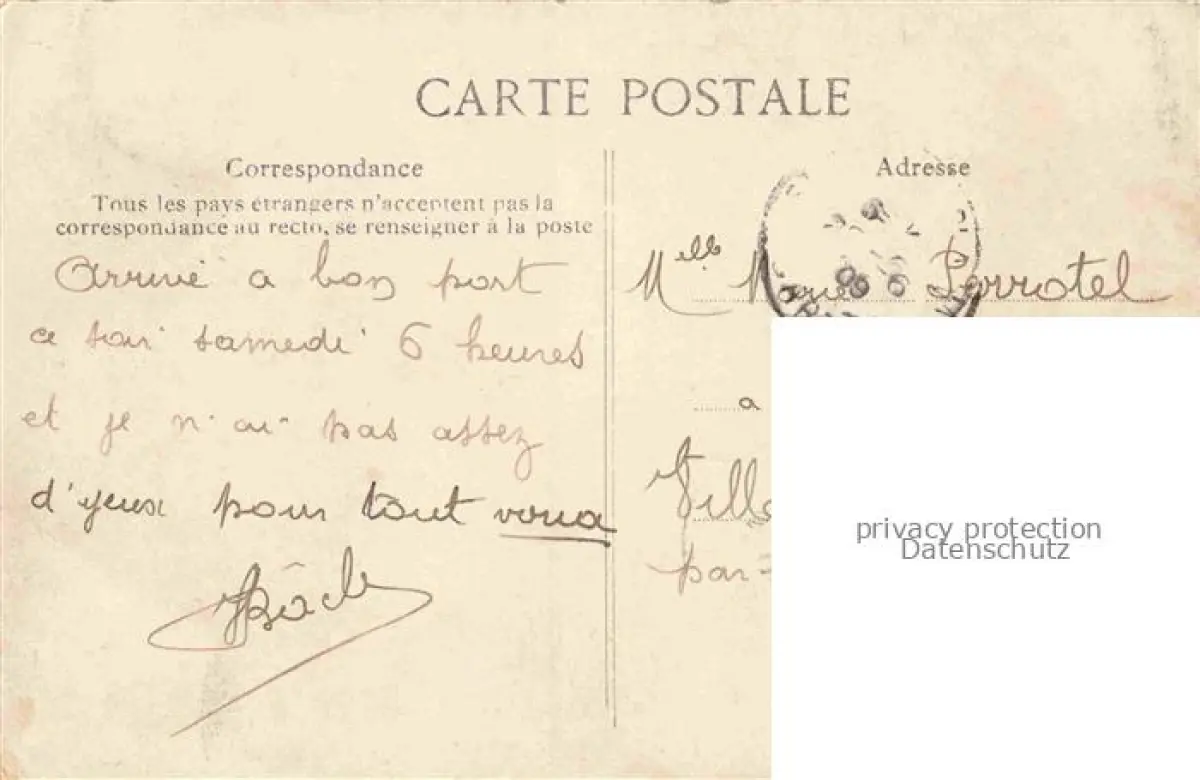 CARTE POSTALE
Correspondance
Tous les pays étrangers n'acceptent pas la
correspondance au recto, se renseigner à la poste
Arrivé a bon port
ce soir samedi 6 heures
et je n'ai pas assez
d'yeux pour tout voua
Adresse
Melle Perrotel
a
par-
privacy protection
Datenschutz